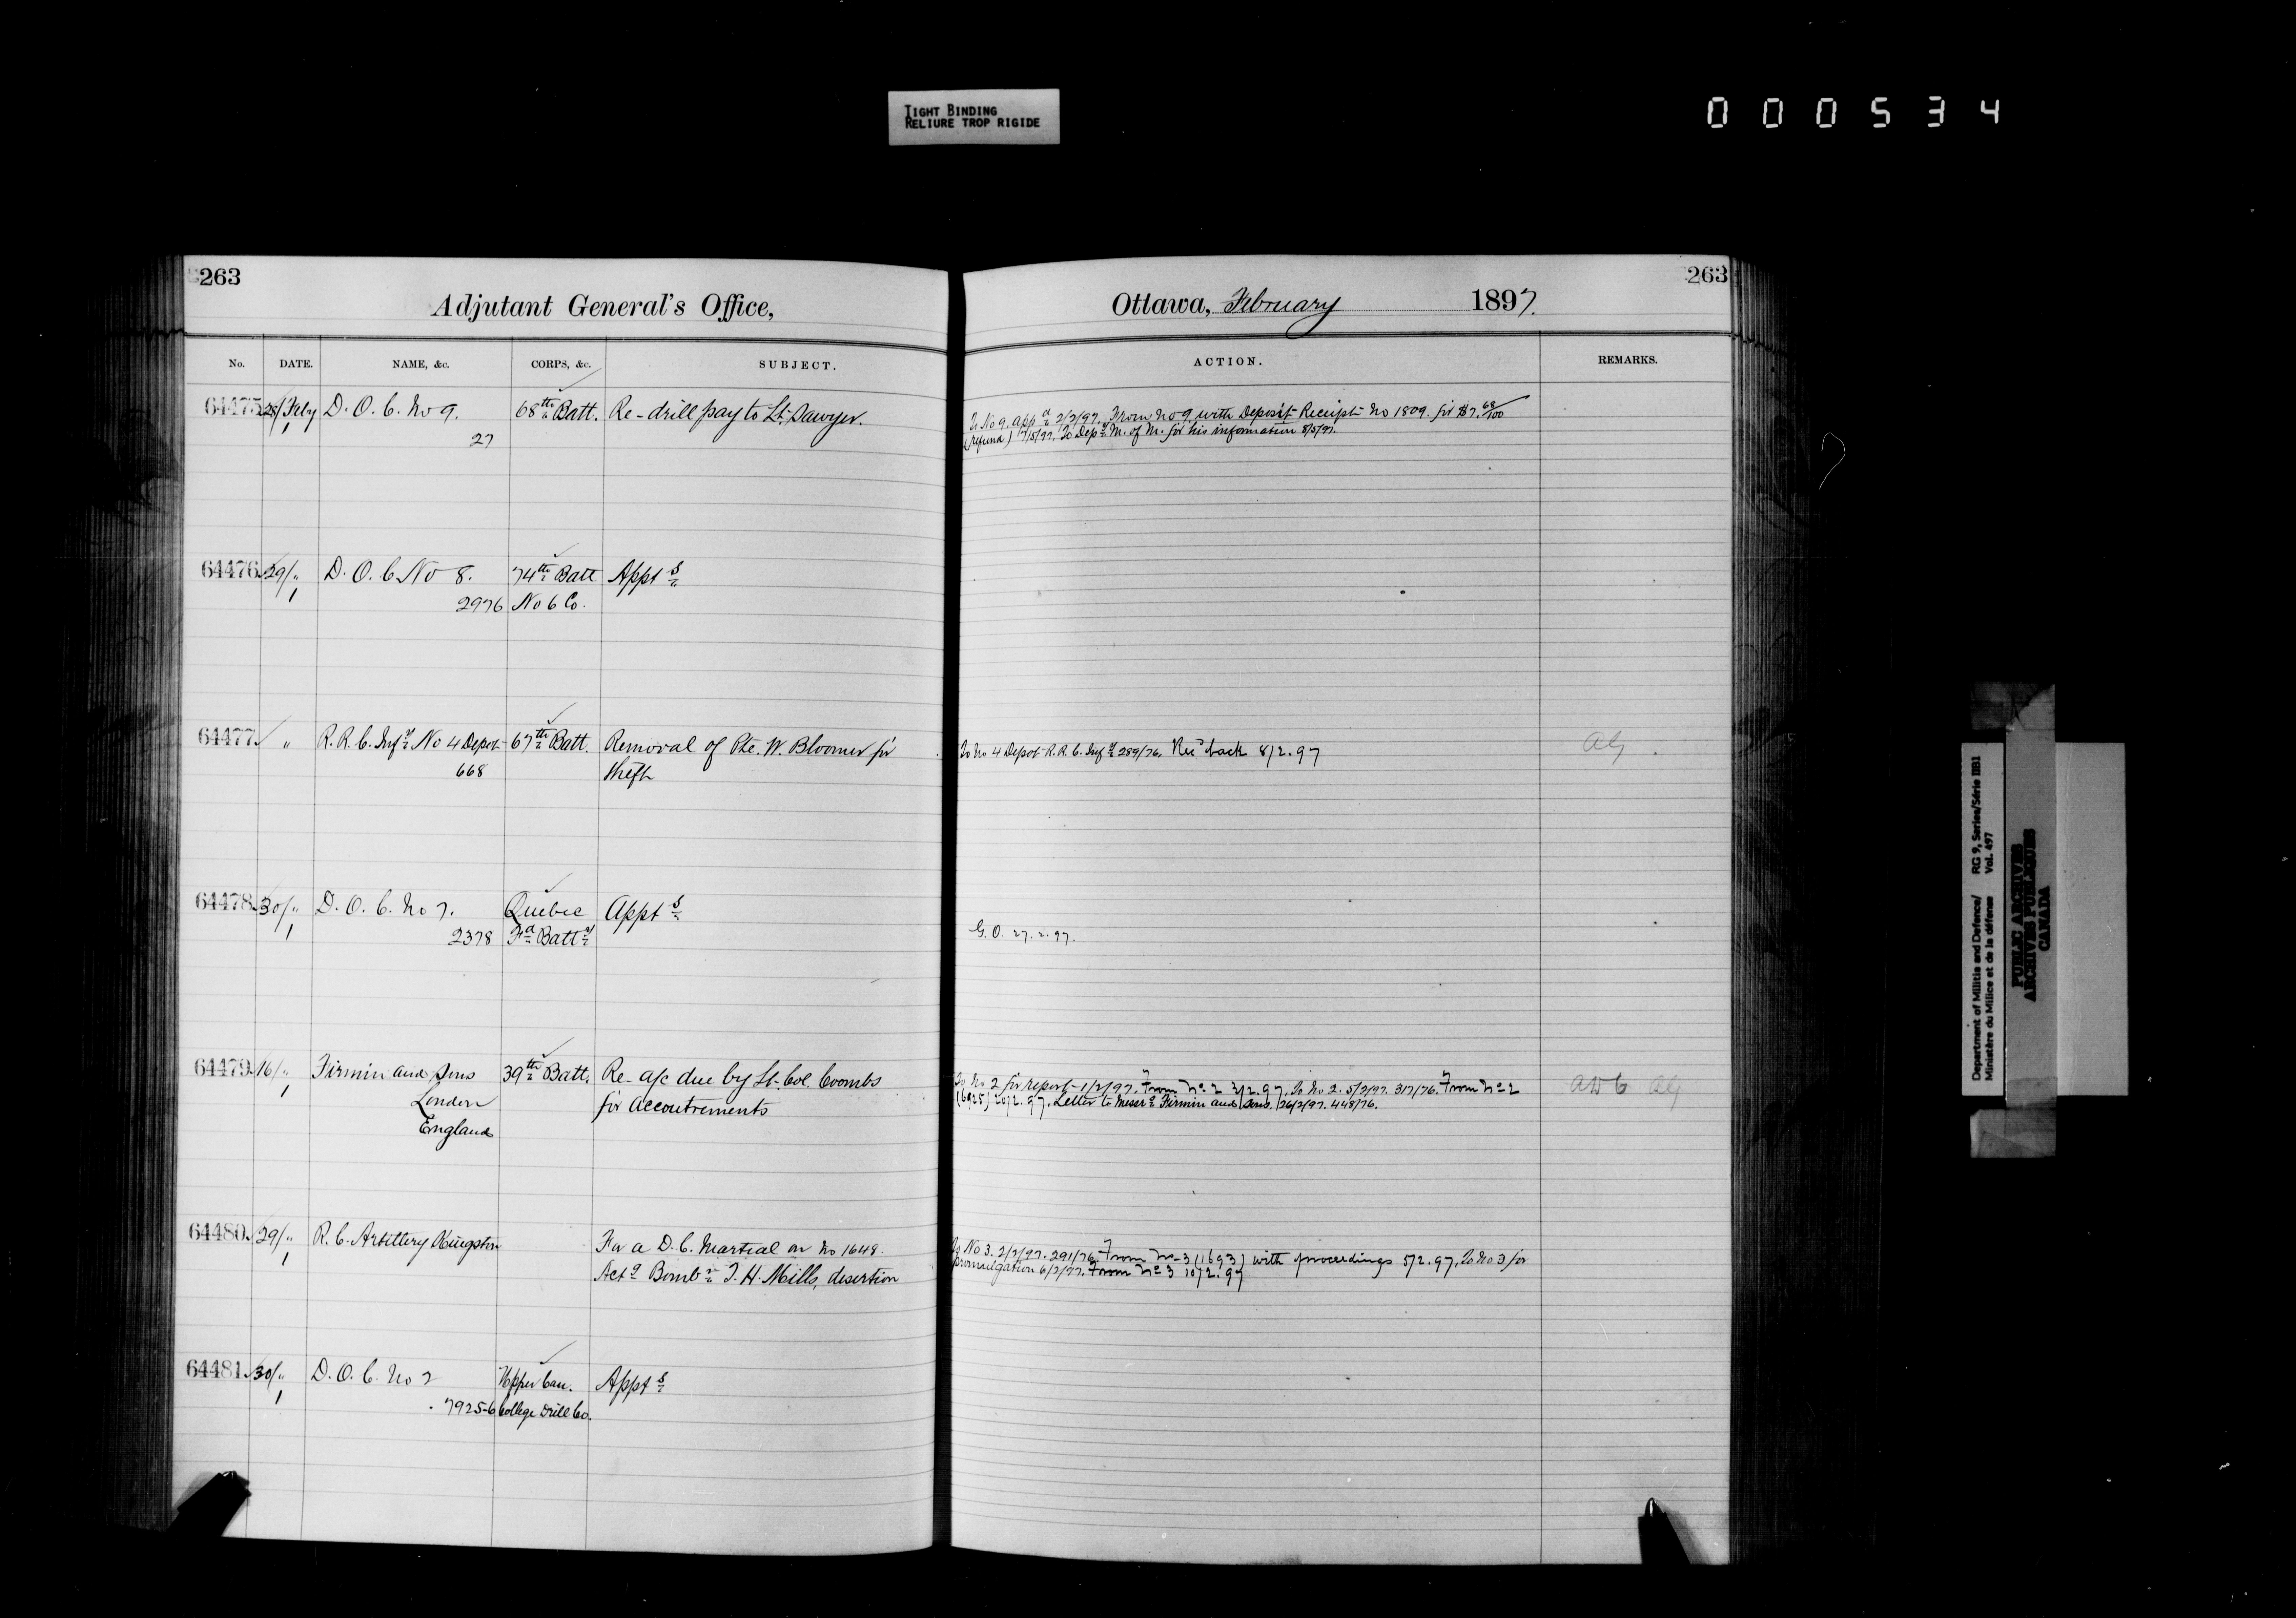 TIGHT BINDING
RELIURE TROP RIGIDE
000534
263
Adjutant General's Office,
No. DATE. NAME, &c. CORPS, &c. SUBJECT.
64475 28/1 Feby D. O. C. No 9. 68th Batt. Re-drill pay to Lt. Sawyer.
27
64476 29/1 " D. O. C No 8. 74th Batt Appts
2976 No 6 Co.
64477 " R. R. C. Infy No 4 Depot 67th Batt. Removal of Pte. W. Bloomer for
668 theft
64478 30/1 " D. O. C. No 7. Quebec Appts
2378 Fd Batty
64479 16/1 " Firmin and Sons 39th Batt. Re- a/c due by Lt-Col. Coombs
London for accoutrements
England
64480 29/1 " R. C. Artillery Kingston For a D. C. Martial on No 1648.
Actg Bombr T. H. Mills, desertion
64481 30/1 " D. O. C. No 2 Upper Can. Appts
7925-6 College Drill Co.
263
Ottawa, February 1897.
ACTION. REMARKS.
To No 9. appd 2/2/97. From No 9 with Deposit Receipt No 1809. for $7.68/100
(refund) 7/5/97. To Depy M. of M. for his information 8/5/97.
To No 4 Depot R.R.C. Infy 289/76. Recd back 8/2.97 AG
G. O. 27.2.97.
To No 2 for report-1/2/97. From No 2 3/2.97. To No 2. 5/2/97. 317/76. From No 2
(6925) 20/2.97. Letter to Messrs Firmin and Sons. 26/2/97. 448/76.
To No 3. 2/2/97. 291/76. From No 3 (1693) with proceedings 5/2.97. To No 3 for
promulgation 6/2/97. From No 3 10/2.97
Department of Militia and Defence/ RG 9, Series/Série IIB1
Ministère du Milice et de la défense Vol. 497
PUBLIC ARCHIVES
ARCHIVES PUBLIQUES
CANADA